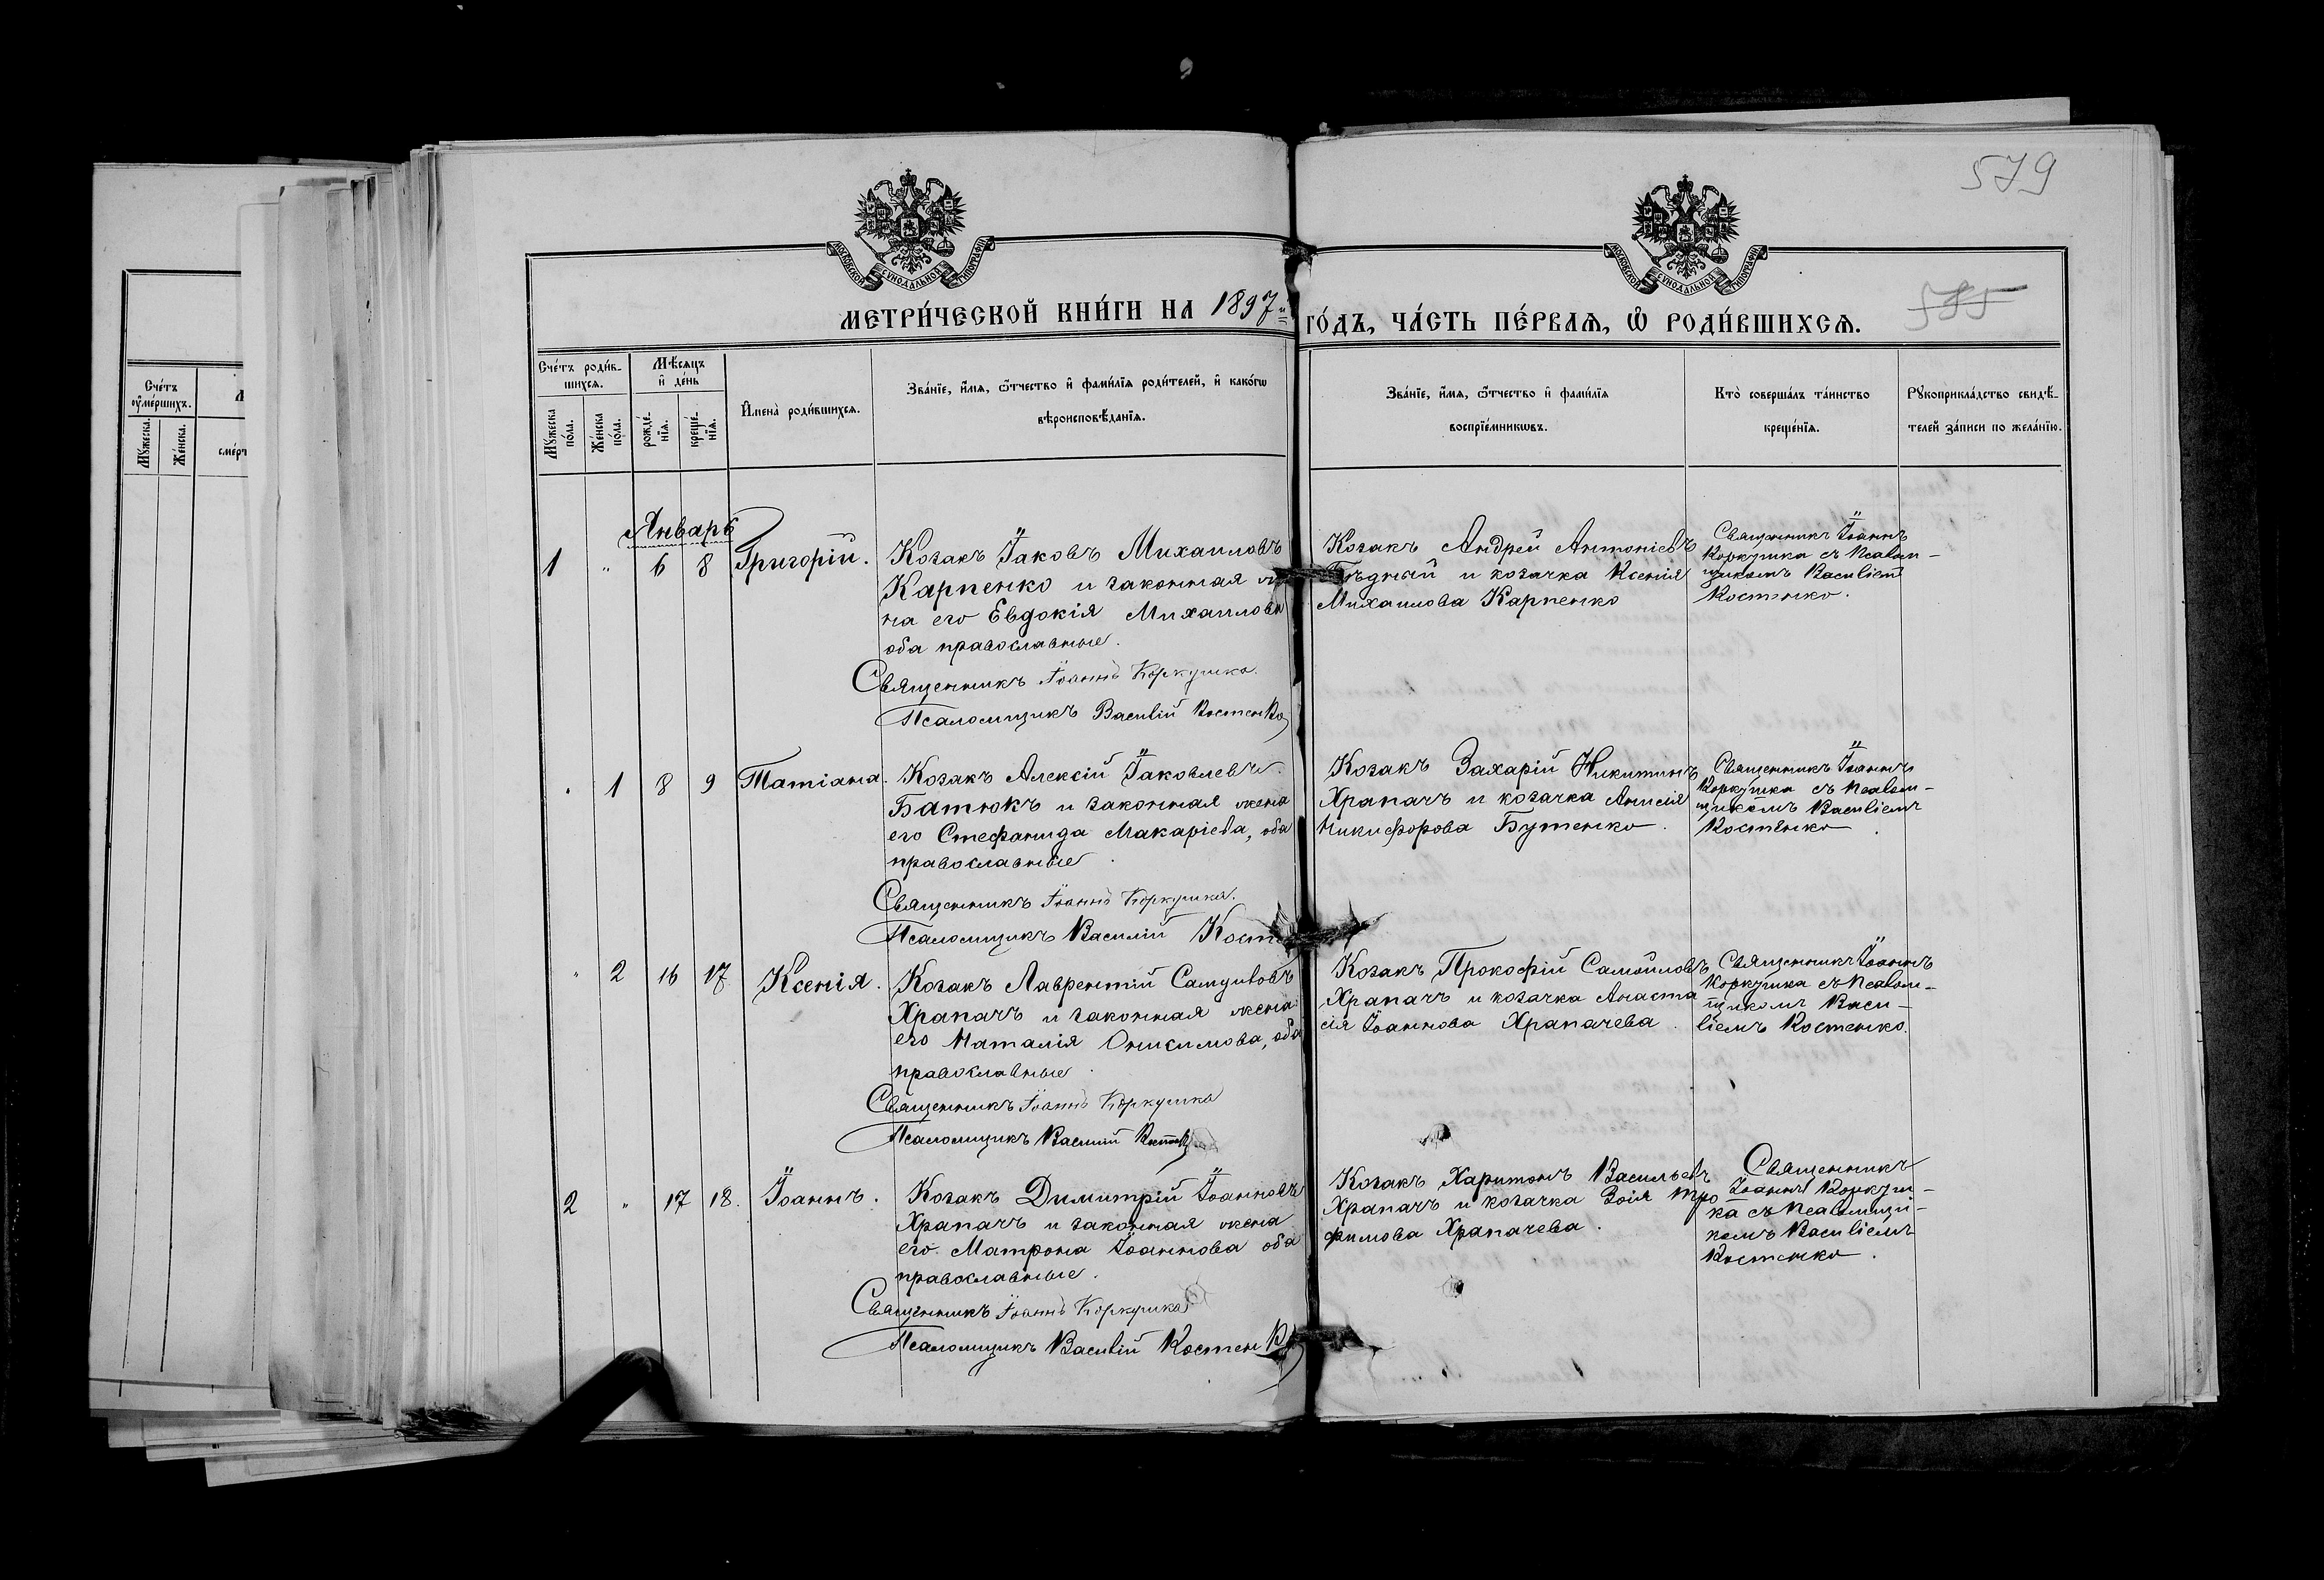 579
585
МОСКОВСКОЙ СѴНОДАЛЬНОЙ ТИПОГРАФІИ
МОСКОВСКОЙ СѴНОДАЛЬНОЙ ТИПОГРАФІИ
МЕТРИ́ЧЕСКОЙ КНИ́ГИ НА 1897 й ГО́ДЪ, ЧА́СТЬ ПЕ́РВАЯ, Ѡ҆ РОДИ́ВШИХСЯ.
Сче́тъ оу҆ме́ршихъ.
Мꙋ́жеска.
Же́нска.
Сче́тъ роди́в-
шихся.
Мꙋ́жеска по́ла.
Же́нска по́ла.
Мѣ́сяцъ и҆ де́нь
рожде́-нїя.
креще́-нїя.
И҆мена̀ роди́вшихся.
Зва́нїе, и҆́мя, ѻ҆́тчество и҆ фами́лїя роди́телей, и҆ како́гѡ
вѣроисповѣ́данїя.
Зва́нїе, и҆́мя, ѻ҆́тчество и҆ фами́лїя
воспрїе́мникѡвъ.
Кто̀ соверша́лъ та́инство
креще́нїя.
Рꙋкоприкла́дство свидѣ́-
телей за́писи по жела́нїю.
Январь
1 " 6 8 Григорій.
Козакъ Іаковъ Михаиловъ
Карпенко и законная же
на его Евдокія Михаилова
оба православные.
Священникъ Іоаннъ Коркушка.
Псаломщикъ Василій Костенко
Козакъ Андрей Антоніевъ
Бѣдный и козачка Ксенія
Михаилова Карпенко
Священникъ Іоаннъ
Коркушка съ псалом-
щикомъ Василіемъ
Костенко.
" 1 8 9 Татіана.
Козакъ Алексій Іаковлевъ
Батюкъ и законная жена
его Стефанида Макаріева, оба
православные.
Священникъ Іоаннъ Коркушка.
Псаломщикъ Василій Косте
Козакъ Захарій Никитинъ
Храпачъ и козачка Анисія
Никифорова Бутенко.
Священникъ Іоаннъ
Коркушка съ псалом-
щикомъ Василіемъ
Костенко.
" 2 16 17 Ксенія.
Козакъ Лаврентій Самуиловъ
Храпачъ и законная жена
его Наталія Онисимова, оба
православные.
Священникъ Іоаннъ Коркушка
Псаломщикъ Василій Костенко
Козакъ Прокофій Самойловъ
Храпачъ и козачка Анаста
сія Іоаннова Храпачева.
Священникъ Іоаннъ
Коркушка съ псалом-
щикомъ Васи-
ліемъ Костенко.
2 " 17 18. Іоаннъ.
Козакъ Димитрій Іоанновъ
Храпачъ и законная жена
его Матрона Іоаннова оба
православные.
Священникъ Іоаннъ Коркушка
Псаломщикъ Василій Костенко
Козакъ Харитонъ Васильевъ
Храпачъ и козачка Зоія Тро
фимова Храпачева.
Священникъ
Іоаннъ Коркуш-
ка съ псаломщи-
комъ Василіемъ
Костенко.